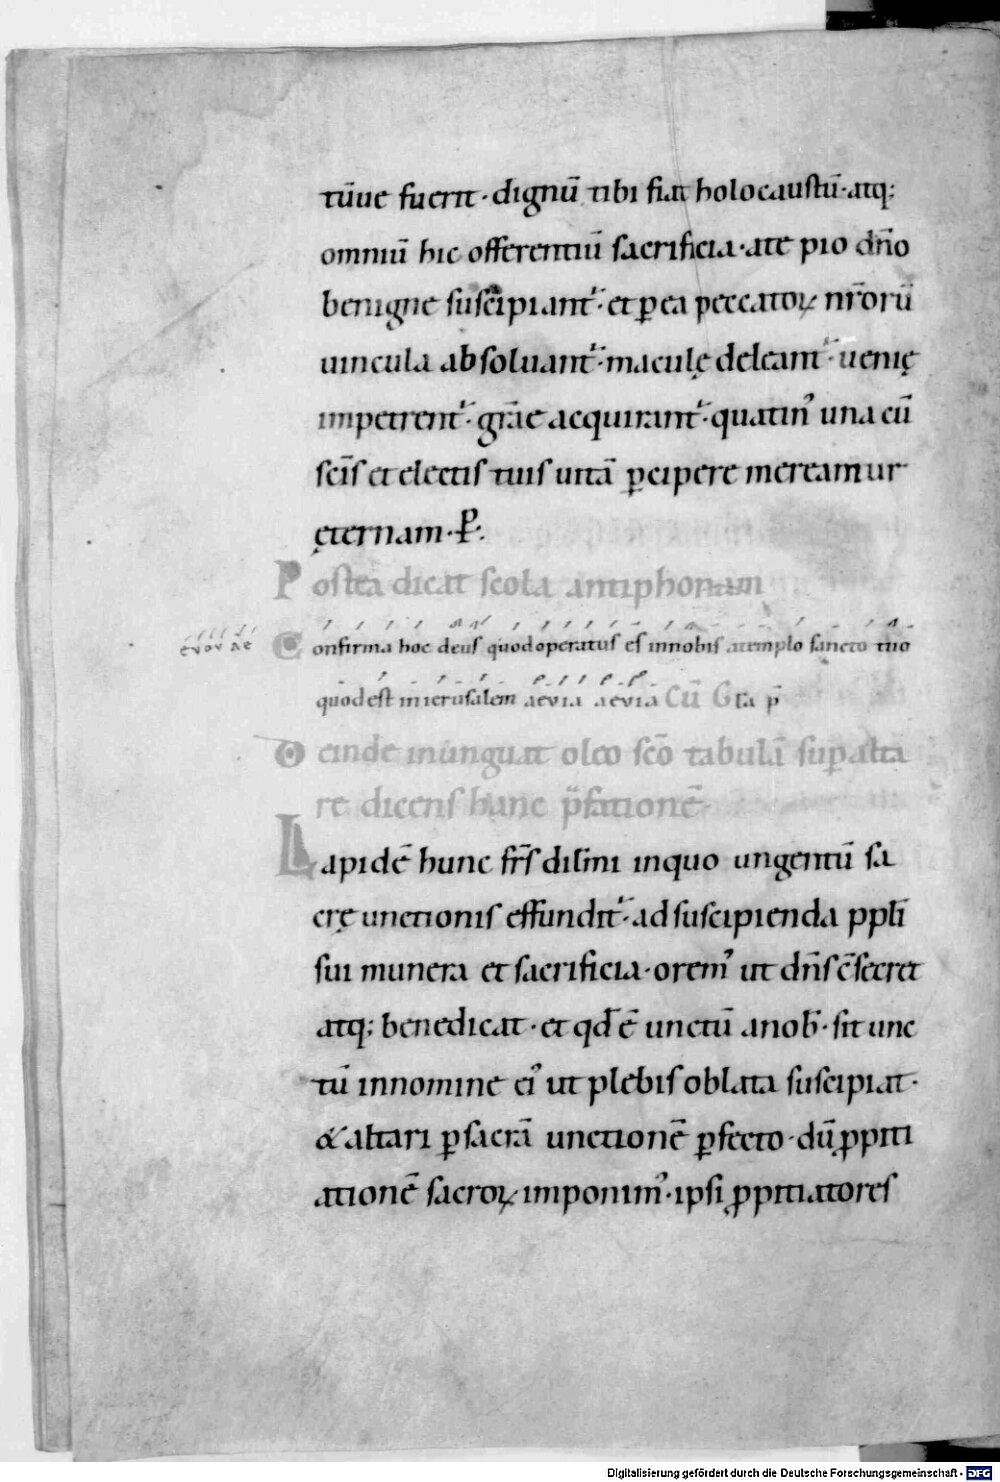 tūue fuerit · dignū tibi fiat holocaustū · atq;
omniū hic offerentiū sacrificia · ate pio dn̄o
benigne suscipiant᷑ · et ꝑea peccatoꝝ nr̄orū
uincula absoluant᷑ · maculę deleant᷑ · uenię
impetrent᷑ · gr̄ae acquirant᷑ · quatinꝰ una cū
sc̄is et electis tuis uitā ꝑcipere mereamur
ęternam · P̄.
Postea dicat scola antiphonam
evovae Confirma hoc deus quod operatus es innobis atemplo sancto tuo
quod est in ierusalem aevia aevia Cū Gła p̄
Deinde inunguat oleo sc̄o tabulā suꝑ alta
re dicens hanc p̄fationē
Lapidē hunc fr̄s dilm̄i inquo ungentū sa
crę unctionis effundit᷑ · ad suscipienda ppłi
sui munera et sacrificia · oremꝰ ut dn̄s c̄secret
atq; benedicat · et qd̄ ē unctū anob̄ · sit unc
tū innomine eiꝰ ut plebis oblata suscipiat ·
& altari ꝑ sacrā unctionē ꝑfecto · dū ꝓpiti
ationē sacroꝝ imponimꝰ · ipsi ꝓpitiatores
Digitalisierung gefördert durch die Deutsche Forschungsgemeinschaft - DFG